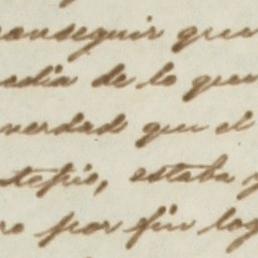 conseguir que
adia de lo que
verdad que el
stepio, estaba y
ro por fin log